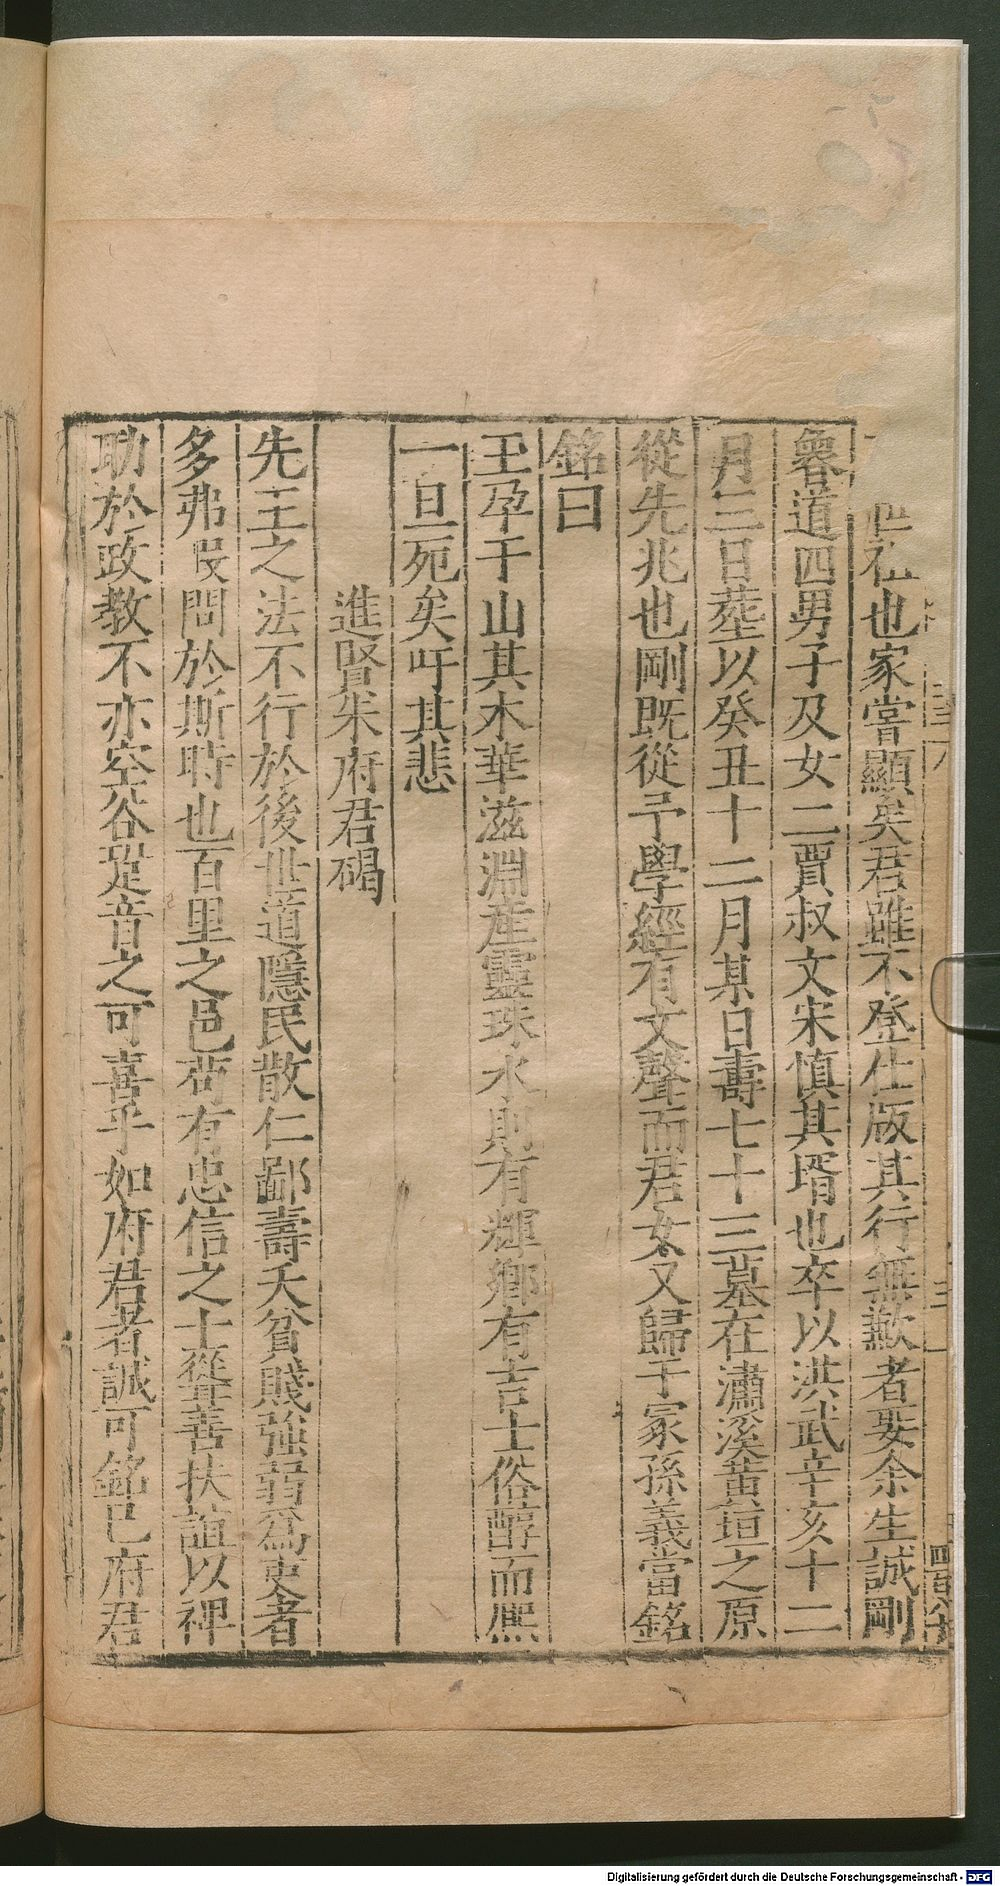 祖也家嘗顯矣君雖不登仕版其行無歉者娶余生誠剛
魯道四男子及女二賈叔文宋慎其壻也卒以洪武辛亥十二
月三日塟以癸丑十二月某日壽七十三墓在瀟溪黄垣之原
從先兆也剛既從予學經有文聲而君女又歸于冢孫義當銘
銘曰
玉孕于山其木華滋淵産靈珠水則有輝鄉有吉士俗醇而熈
一旦死矣吁其悲
進賢朱府君碣
先王之法不行於後世道隱民散仁鄙壽夭貧賤強弱爲吏者
多弗問於斯時也百里之邑苟有忠信之士聳善扶誼以裨
助於政教不亦空谷跫音之可喜乎如府君者誠可銘已府君
Digitalisierung gefördert durch die Deutsche Forschungsgemeinschaft - DFG